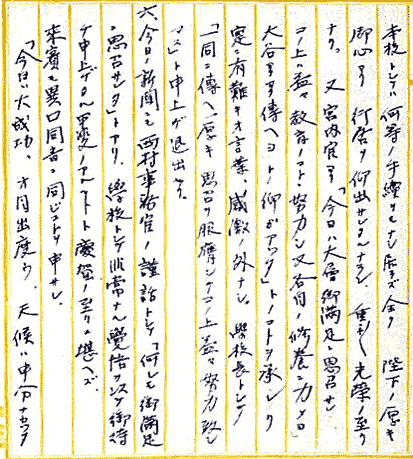 本校トシテハ何等ノ手續ヲモナシ居ラズ全ク 陛下ノ厚キ
御心ヨリ 行啓ヲ仰出サレタルナラン、重ネ〱光榮ノ至リ
ナリ。 又宮内官ヨリ「今日ハ大層御滿足ニ思召サレ
コノ上ハ益々教育ノコトニ努力シ又各自ノ修養ニ力メヨ
大谷ヨリ傳ヘヨトノ仰ガアッタ」トノコトヲ承レリ
寔ニ有難キオ言葉、感激ノ外ナシ、學校長トシテ
「一同ニ傳ヘ厚キ思召ヲ服膺シテコノ上益々努力致シ
マス」ト申上ゲ退出セリ。
六、今日ノ新聞ニ西村事務官ノ謹話トシテ「何レモ御滿足
ニ思召サレタ」トアリ、學校トシテ非常ナル覺悟ヲ以テ御待
チ申上ゲタル甲斐ノアルコト慶賀ノ至リニ堪ヘズ、
來賓モ異口同音ニ同ジコトヲ申サレ、
「今日ハ大成功、オ目出度ウ、天候ハ申分ナカッタ